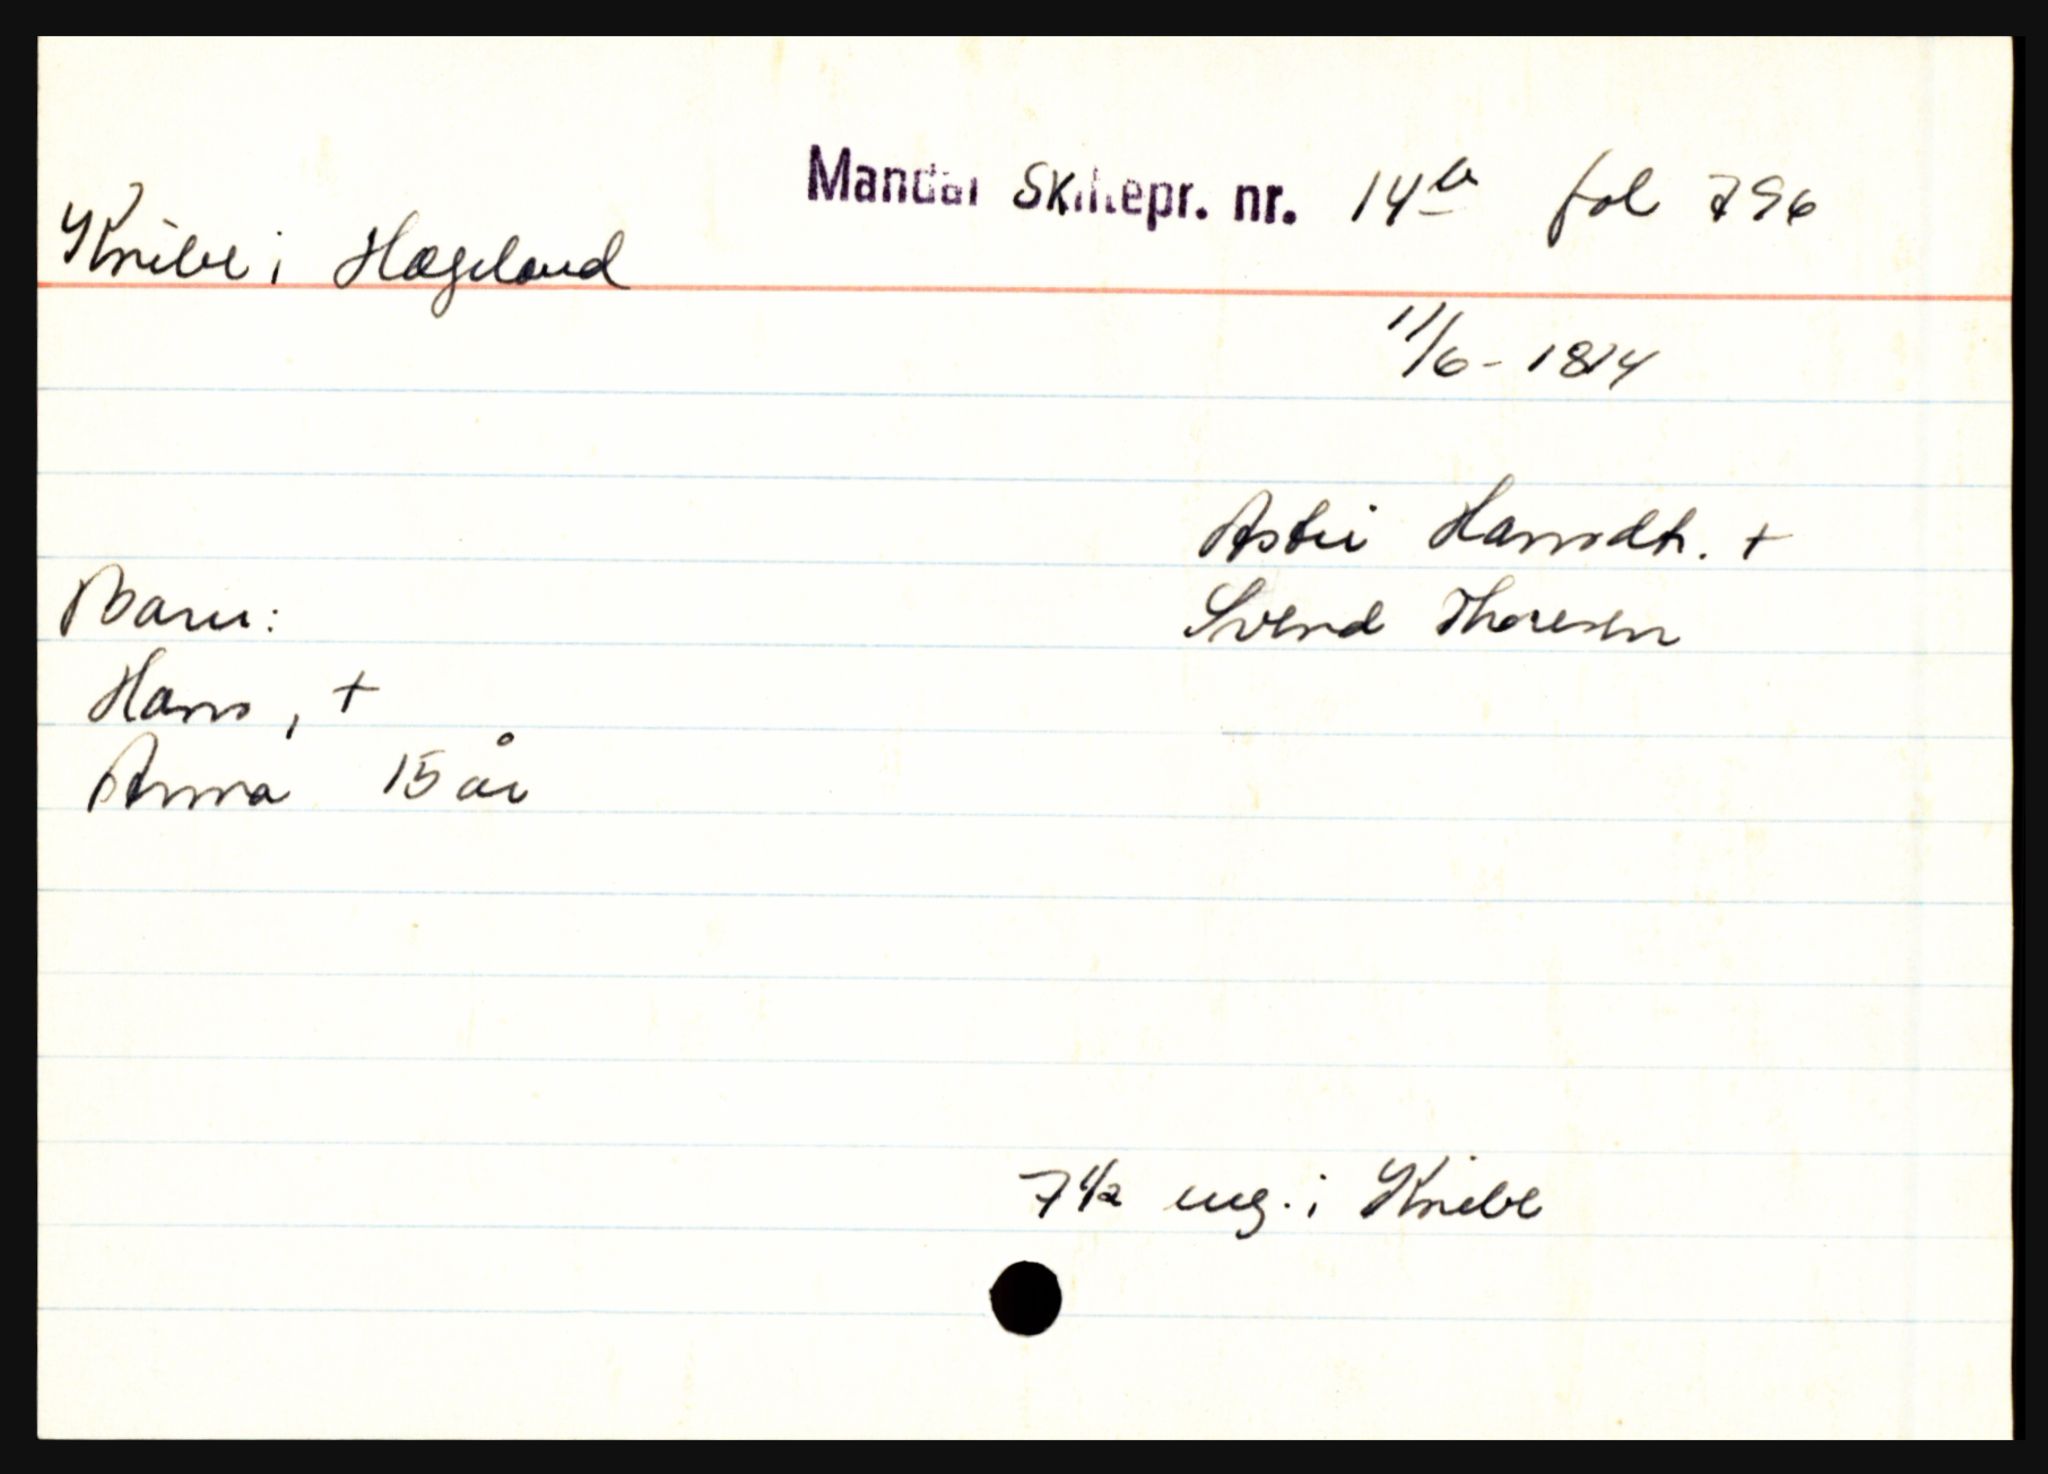 Mandal Skiftepr. nr. 14b fol 796
Knibe i Hægeland
11/6 - 1814
Astri Hansdtr. +
Svend Thoresen
Barn:
Hans, +
Anna 15 år
7 1/2 eng. i Knibe